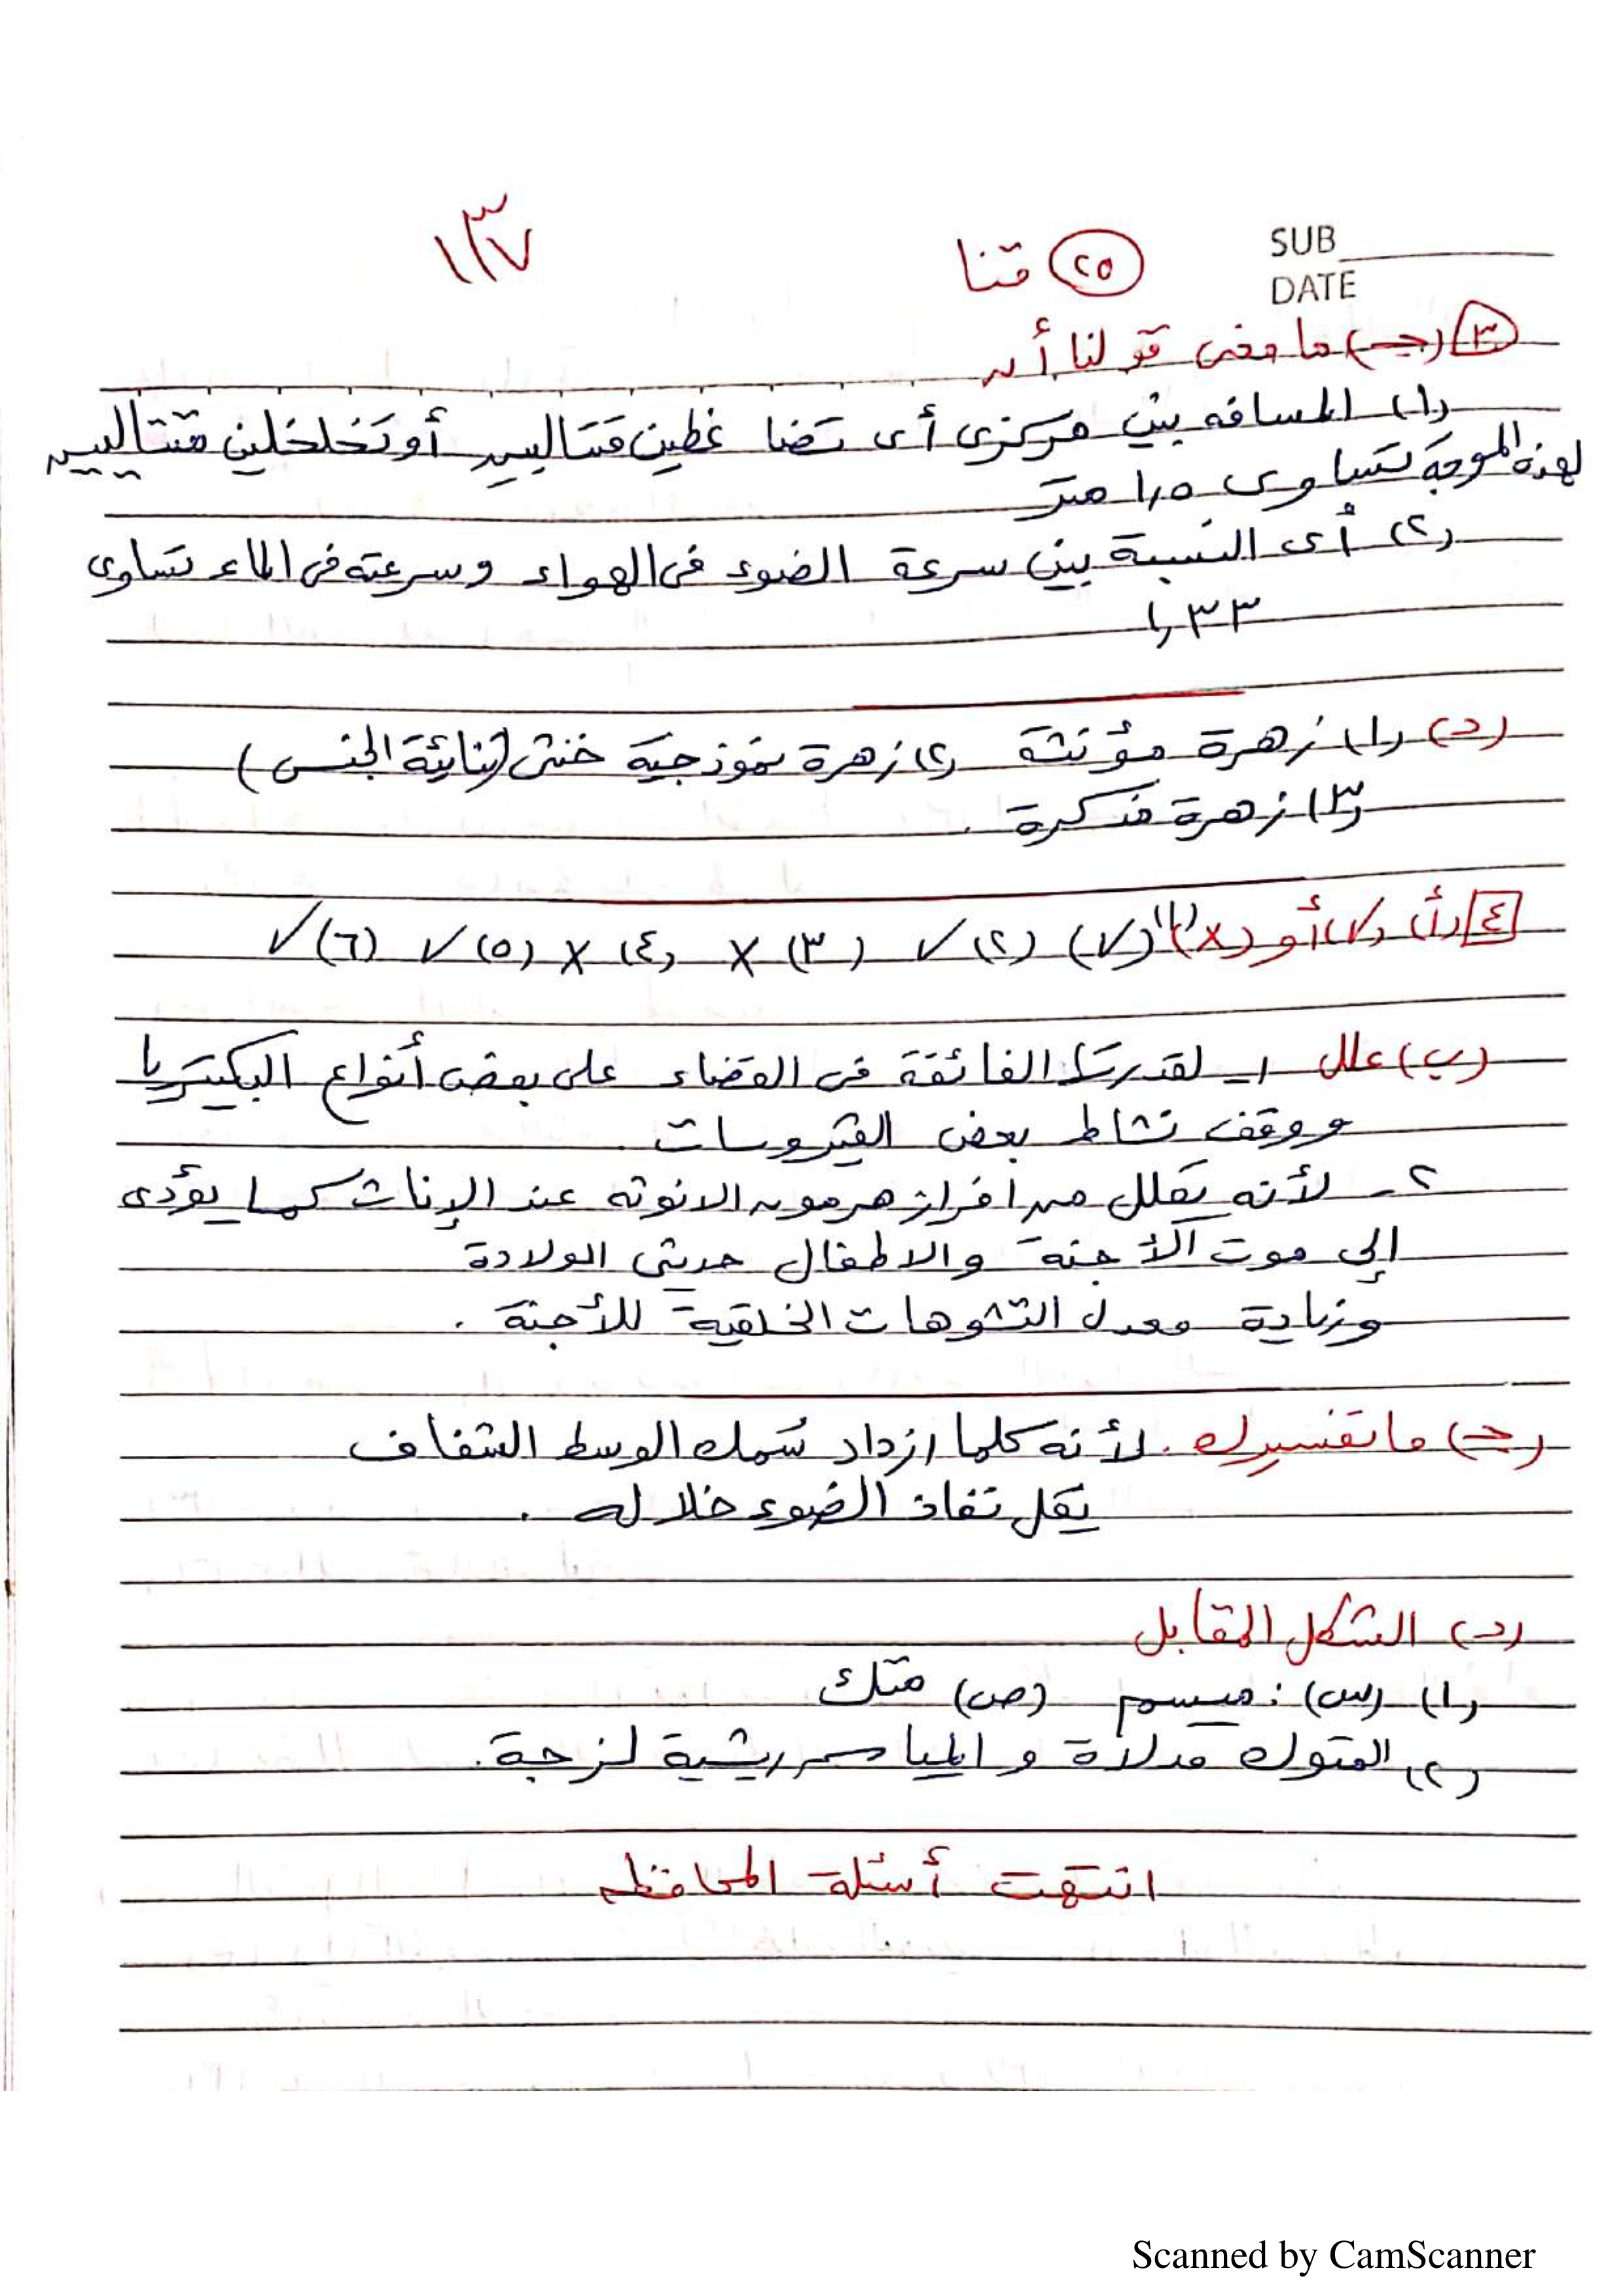 SUB
DATE
٢٥ قنا
١٣٧
٣ (جـ) ما معنى قولنا أن
(١) المسافه بين مركزى أى تضاغطين متتاليين أو تخلخلين متتاليين
لهذه الموجة تساوى ١,٥ متر
(٢) أى النسبة بين سرعة الضوء فى الهواء وسرعته فى الماء تساوى
١,٣٣
(د) (١) زهرة مؤنثة (٢) زهرة نموذجية خنثى (ثنائية الجنس)
(٣) زهرة مذكرة .
٤ (أ) (✓) أو (X) (١) (✓) (٢) ✓ (٣) X (٤) X (٥) ✓ (٦) ✓
(ب) علل ١ـ لقدرتها الفائقة فى القضاء على بعض أنواع البكيتريا
ووقف نشاط بعض الفيروسات .
٢ـ لأنه يقلل من افراز هرمون الانوثه عند الإناث كما يؤدى
إلى موت الأجنة والاطفال حديثى الولادة
وزيادة معدل التشوهات الخلقية للأجنة .
(جـ) ما تفسيرك . لأنه كلما ازداد سُمك الوسط الشفاف
يقل نفاذ الضوء خلاله .
(د) الشكل المقابل
(١) (س) : ميسم (ص) متك
(٢) المتوك مدلاة والمياسم ريشية لزجة .
انتهت أسئلة المحافظه
Scanned by CamScanner